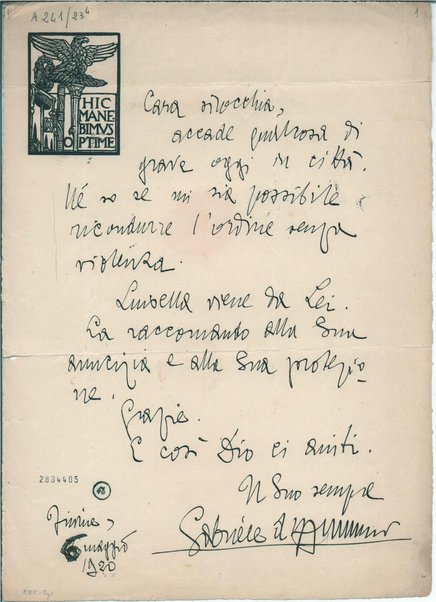 A 241/234
1
HIC
MANE
BIMVS
OPTIME
Cara sirocchia,
accade qualcosa di
grave oggi in città.
Né so se mi sia possibile
ricondurre l'ordine senza
violenza.
Luisella viene da Lei.
La raccomando alla Sua
amicizia e alla Sua protezio-
ne.
Grazie.
E così Dio ci aiuti.
Il Suo sempre
Gabriele d'Annunzio
2834405
Fiume,
6 maggio
1920